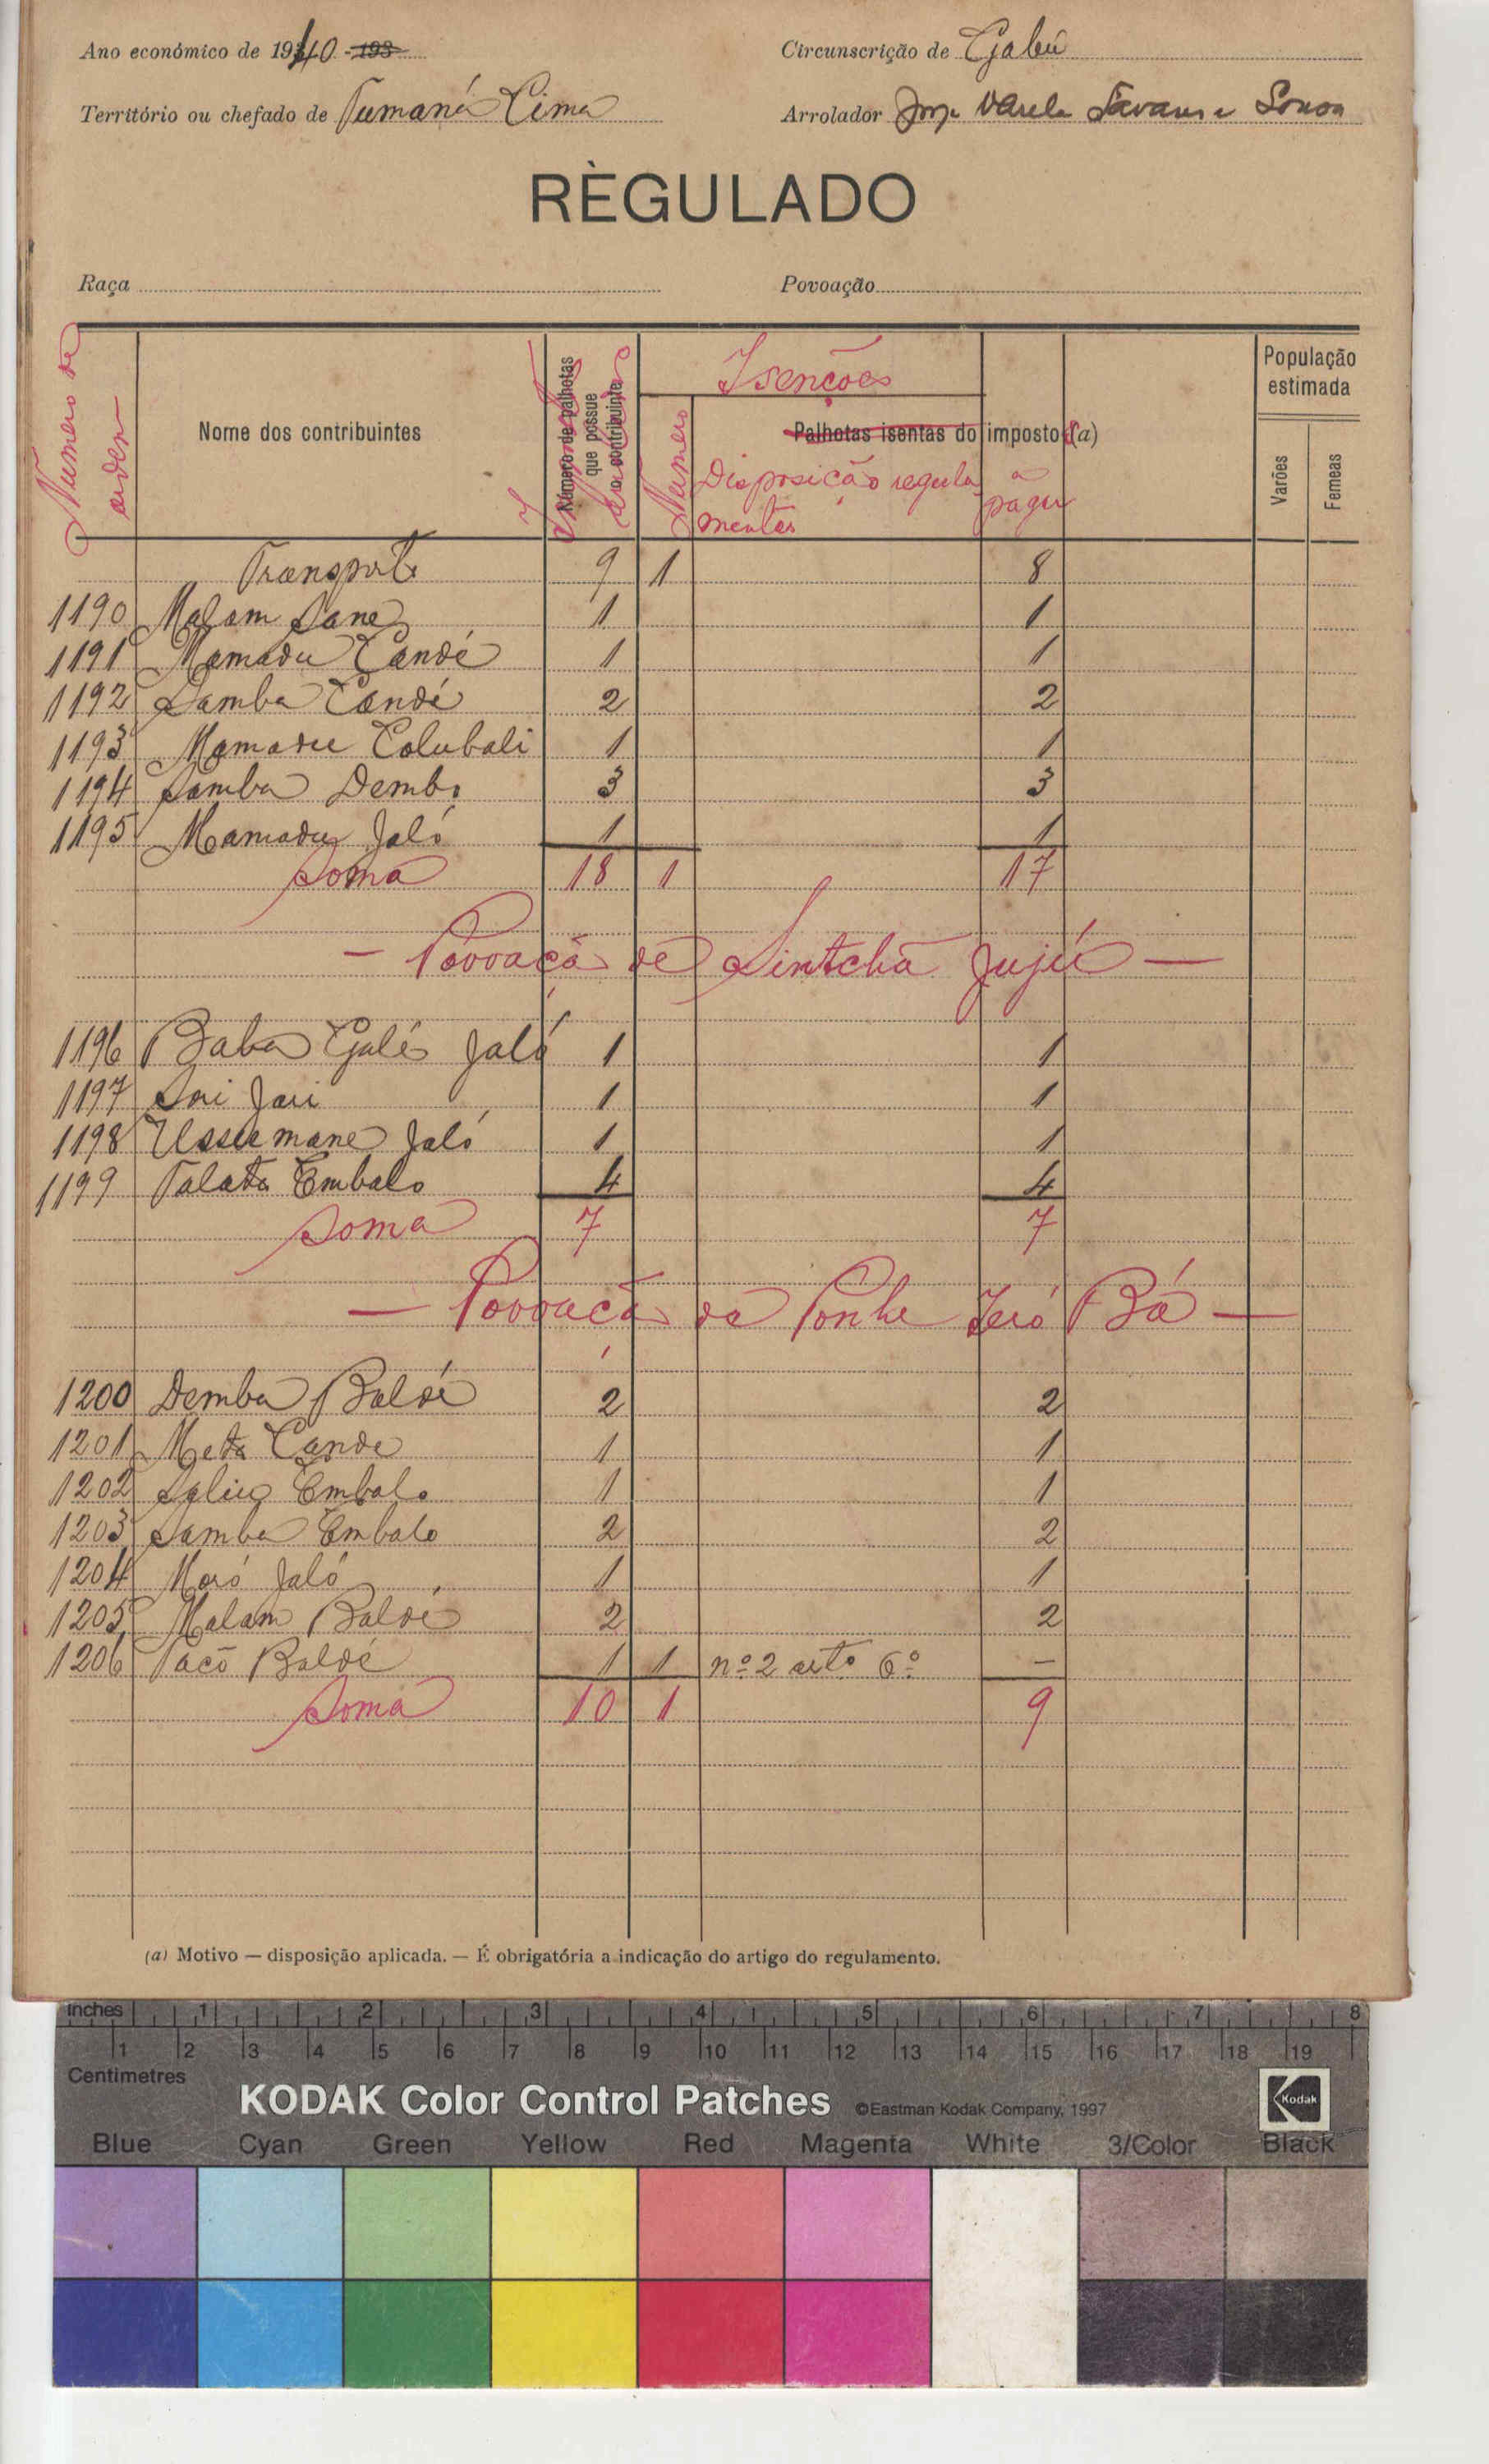 Ano económico de 1940 - 193
Circunscrição de Gabú
Território ou chefado de Tumaná Cima
Arrolador Jorge Varela Tavares e Sousa
RÈGULADO
Raça
Povoação
Numero de orden
Nome dos contribuintes
Número de palhotas que possue o contribuinte
Isenções
Numero
Palhotas isentas do imposto (a)
Disposição regulamentar
a pagar
População estimada
Varões
Femeas
Transporte 9 1 8
1190 Malam Sane 1 1
1191 Mamadu Candé 1 1
1192 Samba Candé 2 2
1193 Mamadu Colubali 1 1
1194 Samba Dembo 3 3
1195 Mamadu Jaló 1 1
Soma 18 1 17
— Povoação de Sintchã Jujú —
1196 Baba Galé Jaló 1 1
1197 Jau 1 1
1198 Ussumane Jaló 1 1
1199 Talata Embalo 4 4
Soma 7 7
— Povoação de Bá —
1200 Demba Baldé 2 2
1201 Meta Cande 1 1
1202 Saliu Embalo 1 1
1203 Samba Embalo 2 2
1204 Moró Jaló 1 1
1205 Malam Baldé 2 2
1206 Baldé 1 1 nº 2 artº 6º —
Soma 10 1 9
(a) Motivo — disposição aplicada. — É obrigatória a indicação do artigo do regulamento.
inches 1 2 3 4 5 6 7 8
1 2 3 4 5 6 7 8 9 10 11 12 13 14 15 16 17 18 19
Centimetres
KODAK Color Control Patches ©Eastman Kodak Company, 1997
Kodak
Blue Cyan Green Yellow Red Magenta White 3/Color Black